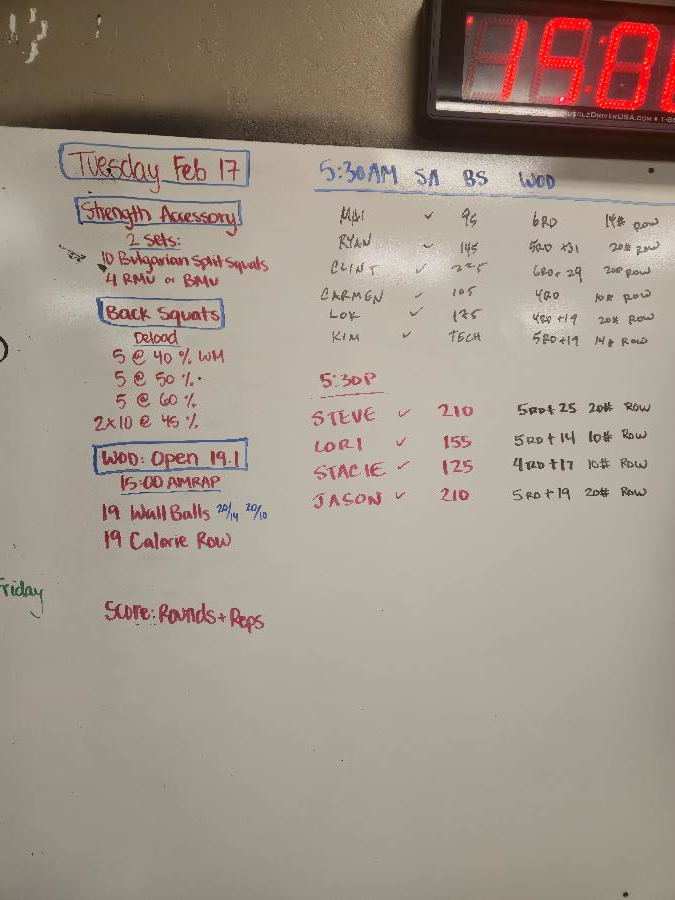 15:0
MUSCLEDRIVERUSA.COM • 1-8
Tuesday Feb 17
Strength Accessory
2 sets:
10 Bulgarian Split Squats
4 RMU or BMU
Back Squats
Deload
5 @ 40 % WM
5 @ 50 %
5 @ 60 %
2x10 @ 45 %
WOD: Open 19.1
15:00 AMRAP
19 Wall Balls 20/14 20/10
19 Calorie Row
Score: Rounds + Reps
Friday
5:30AM SA BS WOD
✓ 95 6RD 14# ROW
RYAN ✓ 145 5RD +31 20# ROW
CLINT ✓ 225 6RD+ 29 20# ROW
CARMEN ✓ 105 4RD 10# ROW
LOK ✓ 175 4RD +19 20# ROW
KIM ✓ TECH 5RD+19 14# ROW
5:30P
STEVE ✓ 210 5RD+ 25 20# ROW
LORI ✓ 155 5RD + 14 10# ROW
STACIE ✓ 125 4RD +17 10# ROW
JASON ✓ 210 5RD + 19 20# ROW